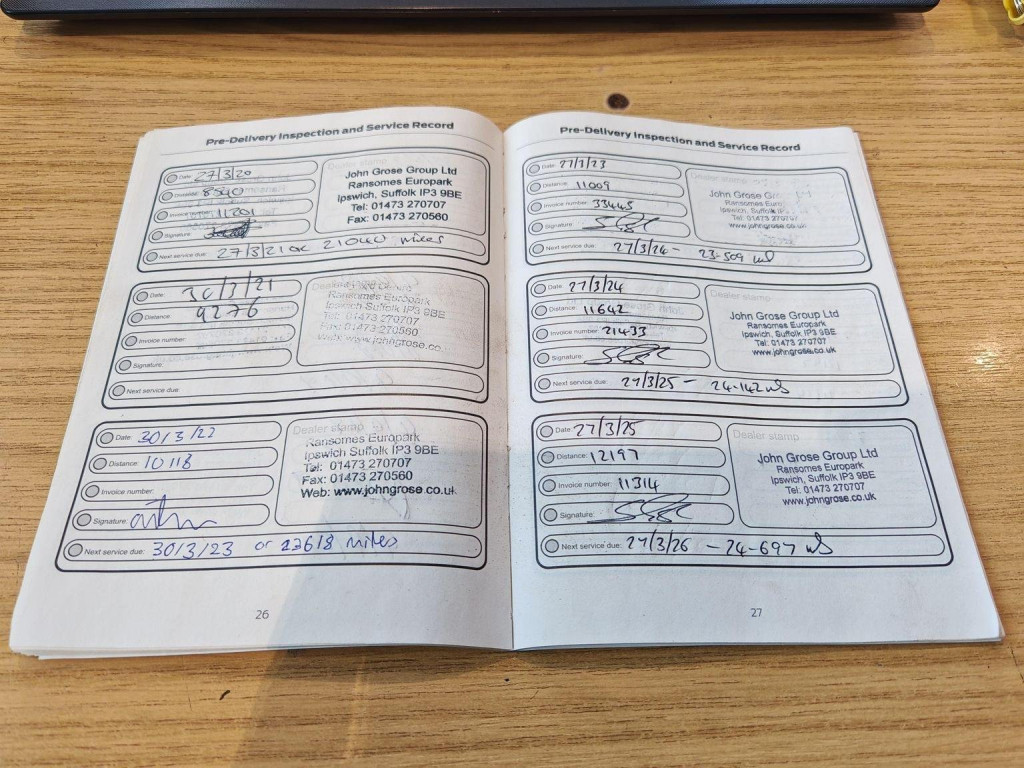 Pre-Delivery Inspection and Service Record
Date: 27/3/20
Distance: 8540
Invoice number: 11201
Signature:
Next service due: 27/3/21 or 21040 miles
Dealer stamp
John Grose Group Ltd
Ransomes Europark
Ipswich, Suffolk IP3 9BE
Tel: 01473 270707
Fax: 01473 270560
Date: 30/3/21
Distance: 9276
Invoice number:
Signature:
Next service due:
Ransomes Europark
Ipswich Suffolk IP3 9BE
Tel: 01473 270707
Fax: 01473 270560
Web: www.johngrose.co.
Date: 30/3/22
Distance: 10118
Invoice number:
Signature:
Next service due: 30/3/23 or 22618 miles
Dealer stamp
Ransomes Europark
Ipswich, Suffolk IP3 9BE
Tel: 01473 270707
Fax: 01473 270560
Web: www.johngrose.co.uk
26
Pre-Delivery Inspection and Service Record
Date: 27/3/23
Distance: 11009
Invoice number: 33445
Signature:
Next service due: 27/3/24 - 23-509
Dealer stamp
John Grose Gr
Ransomes Euro
Ipswich, Suffolk IP
Tel: 01473 270707
www.johngrose.co.uk
Date: 27/3/24
Distance: 11642
Invoice number: 21433
Signature:
Next service due: 27/3/25 - 24-142
Dealer stamp
John Grose Group Ltd
Ransomes Europark
Ipswich, Suffolk IP3 9BE
Tel: 01473 270707
www.johngrose.co.uk
Date: 27/3/25
Distance: 12197
Invoice number: 11314
Signature:
Next service due: 27/3/26 - 24-697
Dealer stamp
John Grose Group Ltd
Ransomes Europark
Ipswich, Suffolk IP3 9BE
Tel: 01473 270707
www.johngrose.co.uk
27